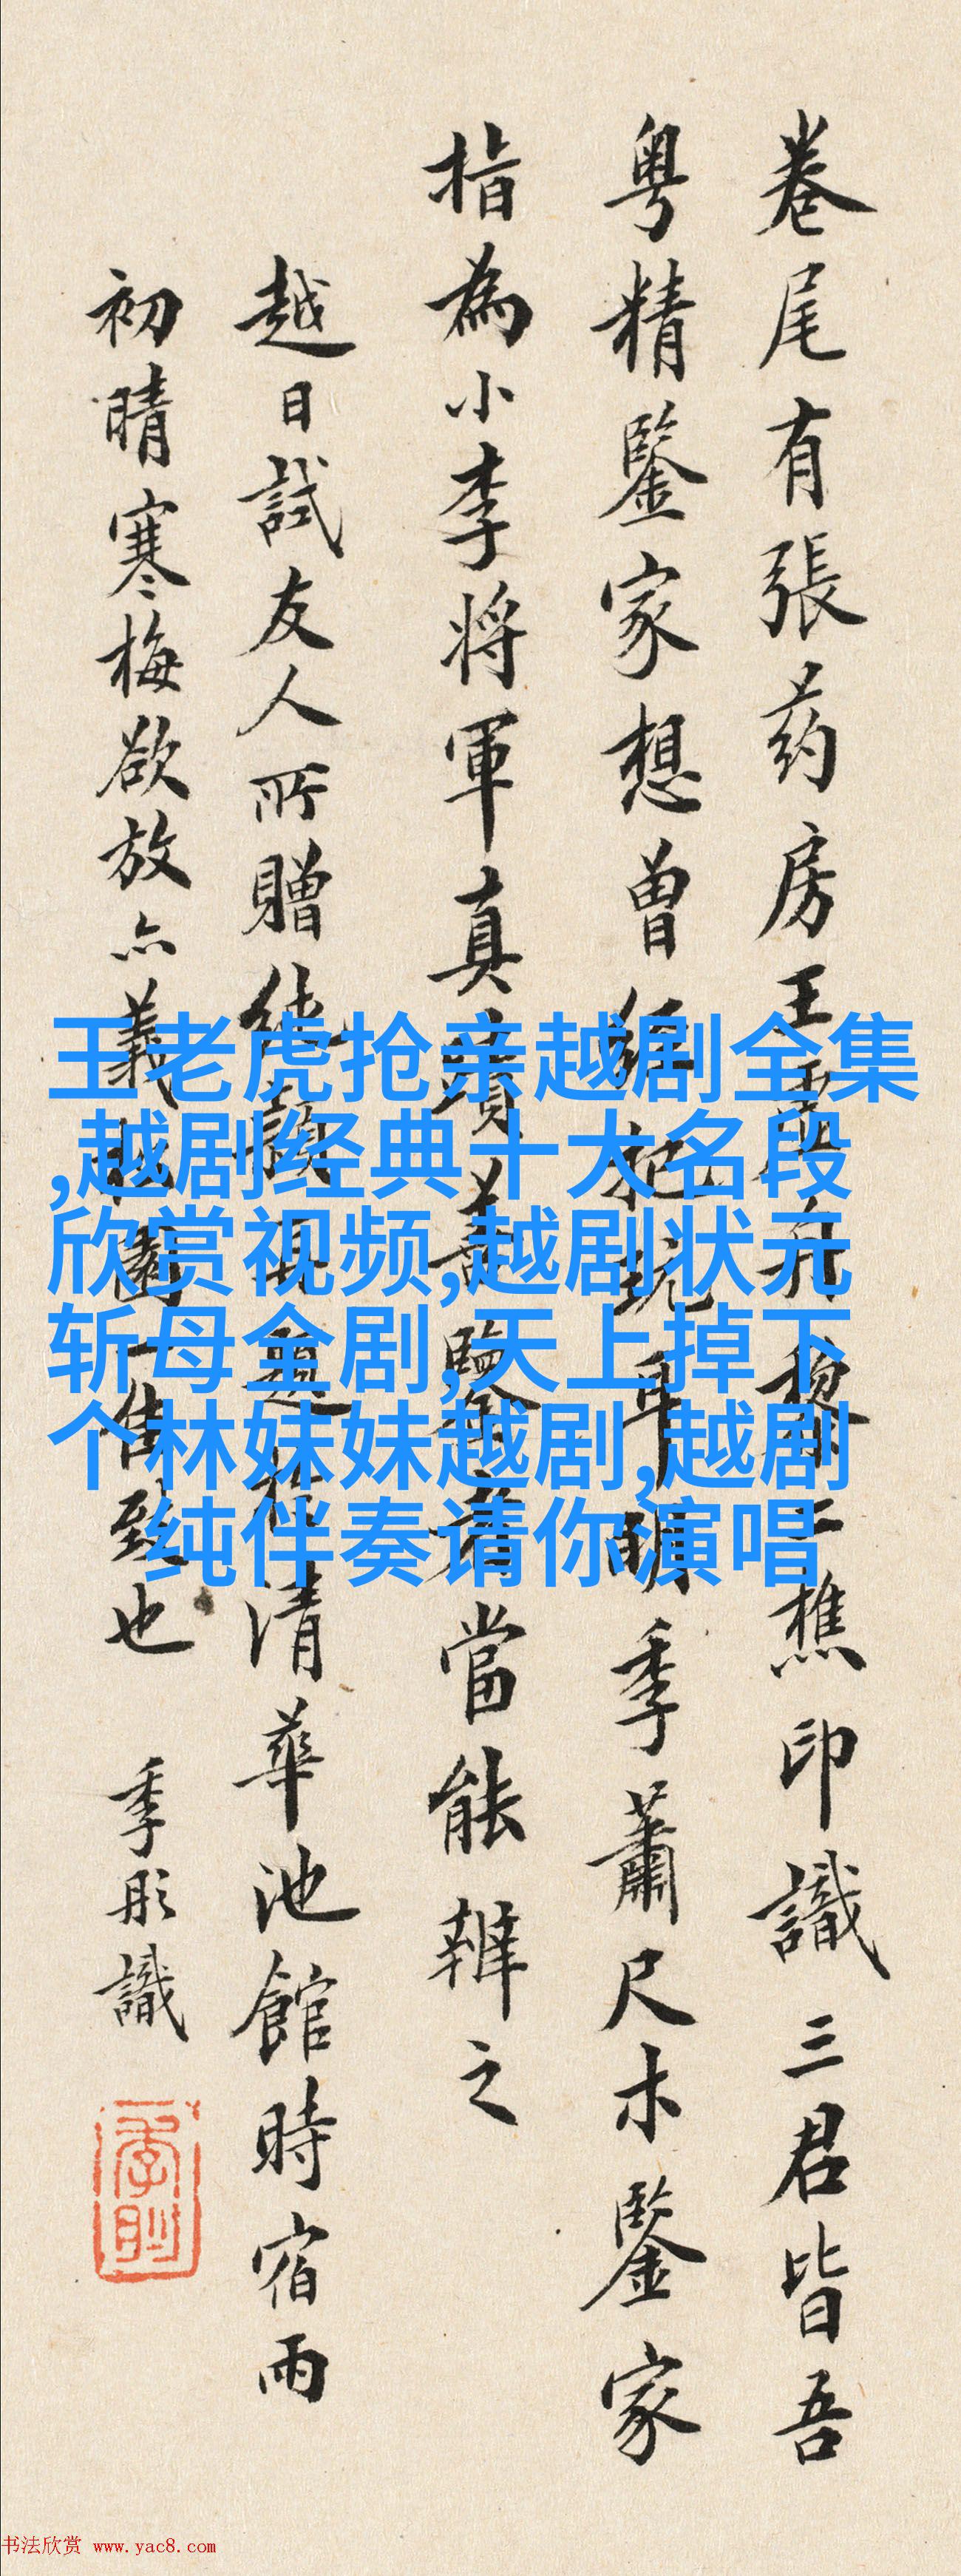 卷尾有張药房王
樵印識三君皆吾
粤精鑒家想曾
季蕭尺木鑒家
指為小李将軍真蹟
當能辨之
越日試友人所贈
清華池館時宿雨
初晴寒梅欲放亦義
佳致也 季彤識
王老虎抢亲越剧全集
,越剧经典十大名段
欣赏视频,越剧状元
斩母全剧,天上掉下
个林妹妹越剧,越剧
纯伴奏请你演唱
书法欣赏 www.yac8.com